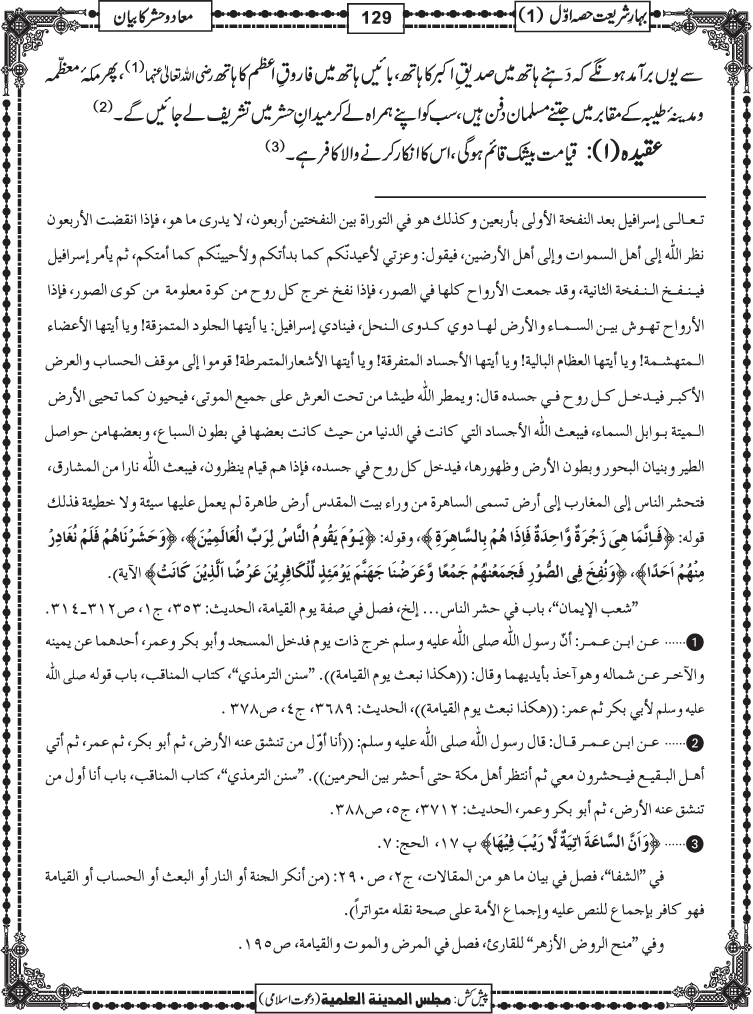 بہارِ شریعت حصہ اوّل (1)
129
معاد و حشر کا بیان
سے یوں برآمد ہونگے کہ دَہنے ہاتھ میں صدیقِ اکبر کا ہاتھ، بائیں ہاتھ میں فاروقِ اعظم کا ہاتھ رضی اللہ تعالیٰ عنہما (1)، پھر مکۂ معظّمہ
و مدینۂ طیبہ کے مقابر میں جتنے مسلمان دفن ہیں، سب کو اپنے ہمراہ لے کر میدانِ حشر میں تشریف لے جائیں گے۔ (2)
عقیدہ (۱): قیامت بیشک قائم ہوگی، اس کا انکار کرنے والا کافر ہے۔ (3)
تعالى إسرافيل بعد النفخة الأولى بأربعين وكذلك هو في التوراة بين النفختين أربعون، لا يدرى ما هو، فإذا انقضت الأربعون
نظر الله إلى أهل السموات وإلى أهل الأرضين، فيقول: وعزتي لأعيدنّكم كما بدأتكم ولأحيينّكم كما أمتكم، ثم يأمر إسرافيل
فينفخ النفخة الثانية، وقد جمعت الأرواح كلها في الصور، فإذا نفخ خرج كل روح من كوة معلومة من كوى الصور، فإذا
الأرواح تهوش بين السماء والأرض لها دوي كدوى النحل، فينادي إسرافيل: يا أيتها الجلود المتمزقة! ويا أيتها الأعضاء
المتهشمة! ويا أيتها العظام البالية! ويا أيتها الأجساد المتفرقة! ويا أيتها الأشعار المتمرطة! قوموا إلى موقف الحساب والعرض
الأكبر فيدخل كل روح في جسده قال: ويمطر الله طيشا من تحت العرش على جميع الموتى، فيحيون كما تحيى الأرض
الميتة بوابل السماء، فيبعث الله الأجساد التي كانت في الدنيا من حيث كانت بعضها في بطون السباع، وبعضها من حواصل
الطير وبنيان البحور وبطون الأرض وظهورها، فيدخل كل روح في جسده، فإذا هم قيام ينظرون، فيبعث الله نارا من المشارق،
فتحشر الناس إلى المغارب إلى أرض تسمى الساهرة من وراء بيت المقدس أرض طاهرة لم يعمل عليها سيئة ولا خطيئة فذلك
قوله: ﴿فَاِنَّمَا هِىَ زَجْرَةٌ وَّاحِدَةٌ فَاِذَا هُمْ بِالسَّاهِرَةِ﴾، وقوله: ﴿يَوْمَ يَقُومُ النَّاسُ لِرَبِّ الْعَالَمِيْنَ﴾، ﴿وَحَشَرْنَاهُمْ فَلَمْ نُغَادِرْ
مِنْهُمْ اَحَدًا﴾، ﴿وَنُفِخَ فِى الصُّوْرِ فَجَمَعْنٰهُمْ جَمْعًا وَّعَرَضْنَا جَهَنَّمَ يَوْمَئِذٍ لِّلْكَافِرِيْنَ عَرْضًا اَلَّذِيْنَ كَانَتْ﴾ الآية).
”شعب الإيمان“، باب في حشر الناس... إلخ، فصل في صفة يوم القيامة، الحديث: ۳۵۳، ج۱، ص۳۱۲۔۳۱۴.
1...... عن ابن عمر: أنّ رسول الله صلى الله عليه وسلم خرج ذات يوم فدخل المسجد وأبو بكر وعمر، أحدهما عن يمينه
والآخر عن شماله وهو آخذ بأيديهما وقال: ((هكذا نبعث يوم القيامة)). ”سنن الترمذي“، كتاب المناقب، باب قوله صلى الله
عليه وسلم لأبي بكر ثم عمر: ((هكذا نبعث يوم القيامة))، الحديث: ۳۶۸۹، ج۴، ص۳۷۸ .
2...... عن ابن عمر قال: قال رسول الله صلى الله عليه وسلم: ((أنا أوّل من تنشق عنه الأرض، ثم أبو بكر، ثم عمر، ثم أتي
أهل البقيع فيحشرون معي ثم أنتظر أهل مكة حتى أحشر بين الحرمين)). ”سنن الترمذي“، كتاب المناقب، باب أنا أول من
تنشق عنه الأرض، ثم أبو بكر وعمر، الحديث: ۳۷۱۲، ج۵، ص۳۸۸.
3...... ﴿وَاَنَّ السَّاعَةَ اٰتِيَةٌ لَّا رَيْبَ فِيْهَا﴾ پ ۱۷، الحج: ۷.
في ”الشفا“، فصل في بيان ما هو من المقالات، ج۲، ص۲۹۰: (من أنكر الجنة أو النار أو البعث أو الحساب أو القيامة
فهو كافر بإجماع للنص عليه وإجماع الأمة على صحة نقله متواتراً).
وفي ”منح الروض الأزهر“ للقارئ، فصل في المرض والموت والقيامة، ص۱۹۵.
پیش کش: مجلس المدينة العلمية (دعوت اسلامی)